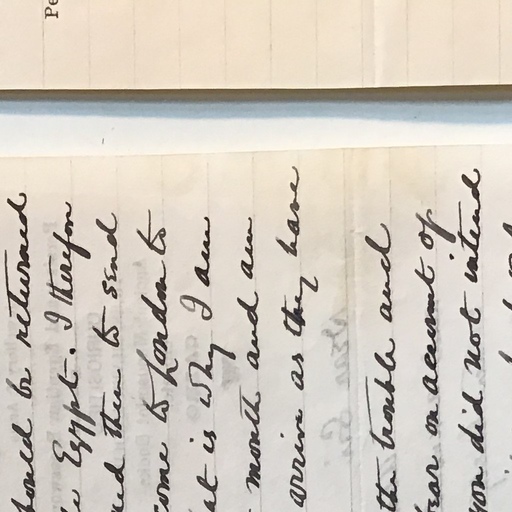 should be returned
Egypt. I therefore
them to send
come to London to
at is why I am
month and am
arrive as they have
the trouble and
bear on account of
you did not intend
Pe